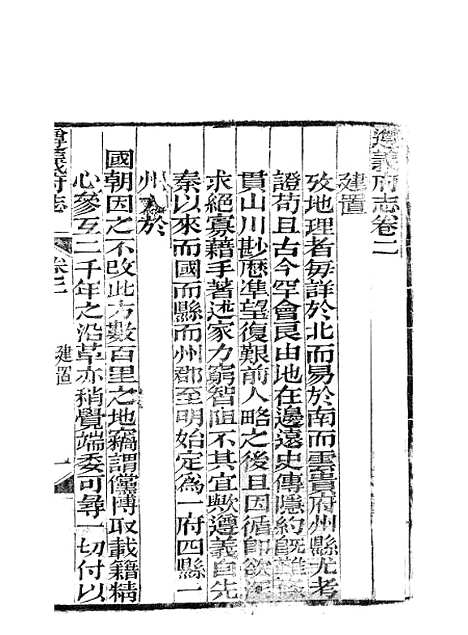 遵義府志卷二
建置
攷地理者每詳於北而易於南而雲貴府州縣尤考
證苟且古今罕會良由地在邊遠史傳隱約既難
貫山川尠歷準望復艱前人略之後且因循即欲
求絕寡藉手著述家力窮智阻不其宜歟遵義自先
秦以來而國而縣而州郡至明始定為一府四縣一
州入於
國朝因之不改此方數百里之地竊謂儻博取載籍精
心參互二千年之沿革亦稍覺端委可尋一切付以
遵義府志
卷二
建置
一